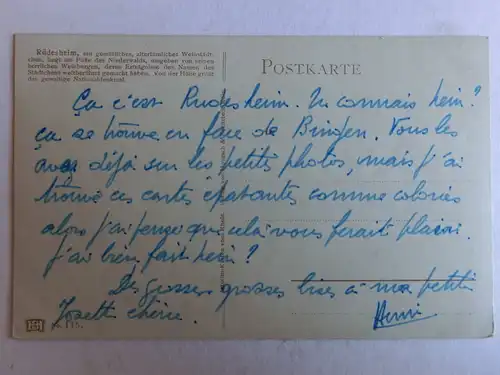 Rüdesheim, ein gemütliches, altertümliches Weinstädt-
chen, liegt am Fuße des Niederwalds, umgeben von seinen
herrlichen Weinbergen, deren Erzeugnisse den Namen des
Städtchens weltberühmt gemacht haben. Von der Höhe grüßt
das gewaltige Nationaldenkmal.
POSTKARTE
Ça c'est Rudesheim. Tu connais hein?
ça se trouve en face de Bingen. Vous les
avez déjà sur les petites photos, mais j'ai
trouvé ces cartes épatantes comme coloris
alors j'ai pensé que cela vous ferait plaisir.
J'ai bien fait hein?
Des grosses grosses bises à ma petite
Josette chérie. Henri
115.